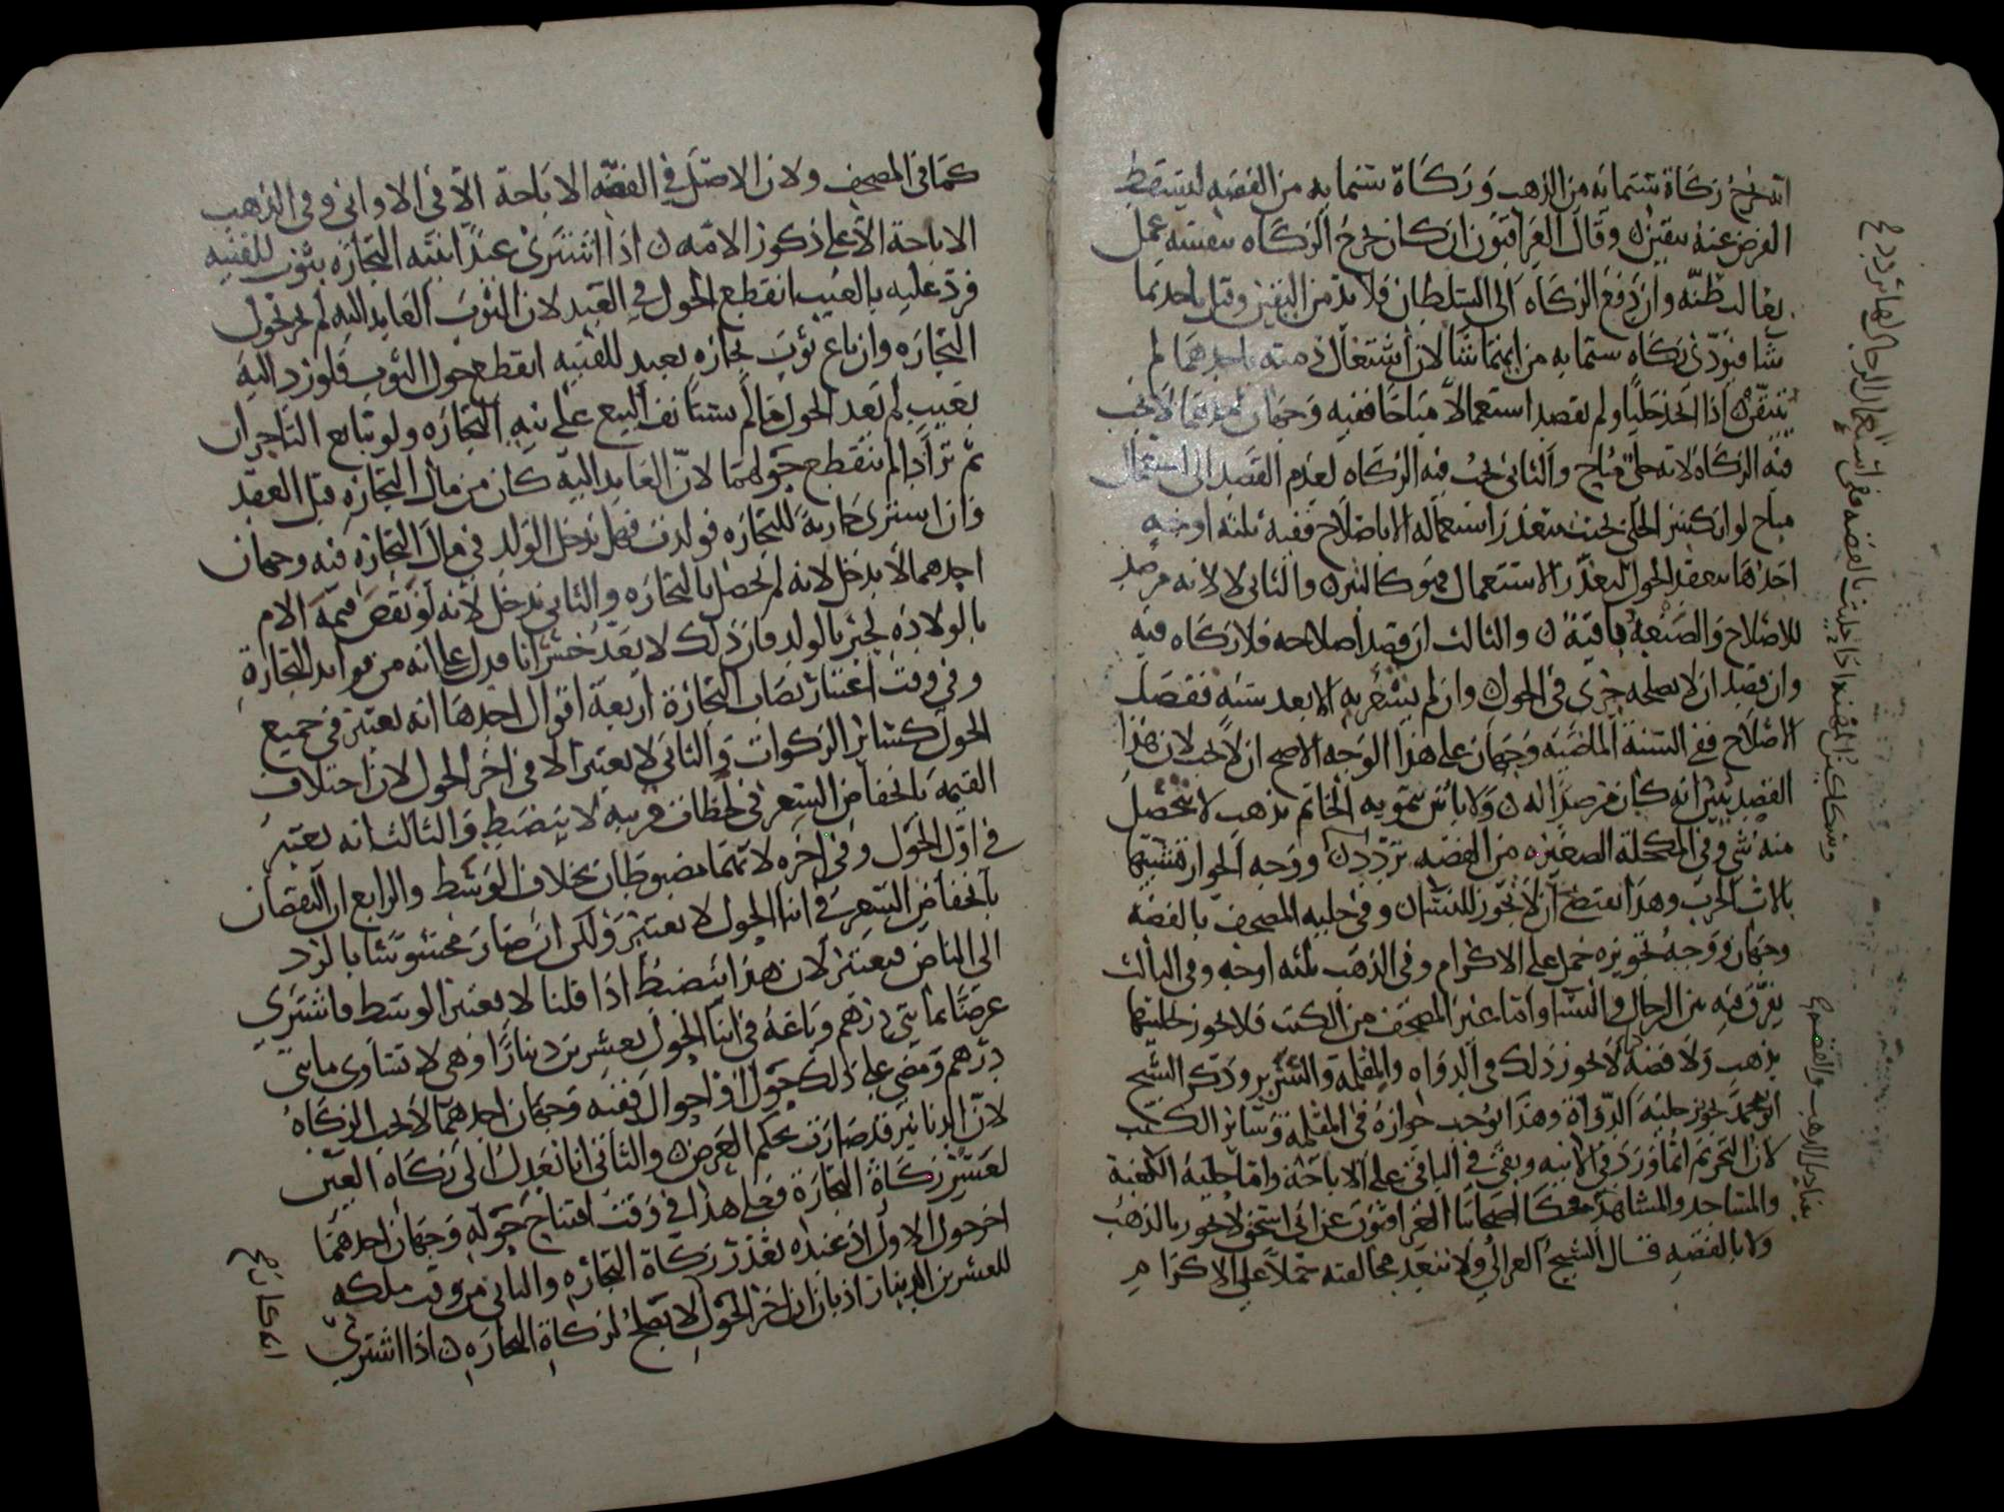 اخرج زكاة ستمائه من الذهب وزكاة ستمايه من الفضه ليسقط
الفرض عنه بيقين وقال العراقيون ان كان يخرج الزكاه بنفسه عمل
بغالب ظنه وان دفع الزكاه الى السلطان فلا بد من اليقين وقيل ياخد بما
شا فيودي زكاه ستمايه من ايهما شا لان اشتغال ذمته باحدهما لم
يتيقن اذا اتخذ حليا ولم يقصد استعمالا مباحا ففيه وجهان احدهما لا تجب
فيه الزكاه لانه حلي مباح والثاني تجب فيه الزكاه لعدم القصد الى استعمال
مباح لو انكسر الحلي بحيث يتعذر استعماله الا باصلاح ففيه ثلثه اوجه
احدها ينعقد الحول لتعذر الاستعمال فهو كالتبر والثاني لا لانه مرصد
للاصلاح والصنعة باقية والثالث ان قصد اصلاحه فلا زكاه فيه
وان قصد ان لا يصلحه جرى في الحول وان لم يشعر به الا بعد سنه فقصد
الاصلاح ففي السنة الماضيه وجهان على هذا الوجه الاصح ان لا تجب لان هذا
القصد يبين انه كان مرصدا له ولا باس بتمويه الخاتم بذهب لا يتحصل
منه شي وفي المكحلة الصغيره من الفضه تردد ووجه الجواز تشبيهها
بالات الحرب وهذا يقتضي ان لا تجوز للنسا وفي حليه المصحف بالفضه
وجهان ووجه تجويزه حمل على الاكرام وفي الذهب ثلثه اوجه وفي الثالث
يفرق فيه بين الرجال والنسا واما غير المصحف من الكتب فلا يجوز تحليتها
بذهب ولا فضه كما لا يجوز ذلك في الدواه والمقلمة والسرير وذكر الشيخ
ابو محمد تجويز حليه الدواة وهذا يوجب جوازه في المقلمه وسائر الكتب
لان التحريم انما ورد في الانيه وبقي في الباقي على الاباحة واما حلية الكعبة
والمساجد والمشاهد فحكى اصحابنا العراقيون عن ابي اسحق لا يجوز بالذهب
ولا بالفضه قال الشيخ الغزالي ولا تبعد مخالفته حملا على الاكرام
كما في المصحف ولان الاصل في الفضه الاباحة الا في الاواني وفي الذهب
الاباحة الا على ذكور الامه اذا اشترى عبدا بنيه التجاره بثوب للقنيه
فرد عليه بالعيب انقطع الحول في العبد لان الثوب العايد اليه لم يجر بحول
التجاره وان باع ثوب تجاره بعبد للقنيه انقطع حول الثوب فلو رد اليه
بعيب لم يعد الحول ما لم يستانف البيع على نيه التجاره ولو تبايع التاجران
ثم ترادا لم ينقطع حولهما لان العايد اليه كان من مال التجاره قبل العقد
وان اشترى جارية للتجاره فولدت فهل يدخل الولد في مال التجاره فيه وجهان
احدهما لا يدخل لانه لم يحصل بالتجاره والثاني يدخل لانه لو نقص قيمة الام
بالولادة لجبر بالولد فان ذلك لا يعد خسرانا فدل على انه من فوايد التجارة
وفي وقت اعتبار نصاب التجارة اربعة اقوال احدها انه يعتبر في جميع
الحول كسائر الزكوات والثاني لا يعتبر الا في اخر الحول لان اختلاف
القيمه بانخفاض السعر في لحظات قريبه لا ينضبط والثالث انه يعتبر
في اول الحول وفي اخره لانهما مضبوطان بخلاف الوسط والرابع ان النقصان
بانخفاض السعر في اثنا الحول لا يعتبر ولكن ان صار محسوسا بالرد
الى الناض فيعتبر لان هذا ينضبط اذا قلنا لا يعتبر الوسط فاشترى
عرضا بمايتي درهم وباعه في اثنا الحول بعشرين دينارا وهي لا تساوي مايتي
درهم ومضى على ذلك حول او احوال ففيه وجهان احدهما لا تجب الزكاه
لان الدنانير قد صارت بحكم العرض والثاني انا نعدل الى زكاه العين
لعسر زكاة التجارة فعلى هذا في وقت افتتاح حوله وجهان احدهما
اخر حول الاول اذ عنده تعذر زكاة التجاره والثاني من وقت ملكه
للعشرين الدينار اذ بان ان اخر الحول لا يصلح لزكاة التجاره اذا اشترى